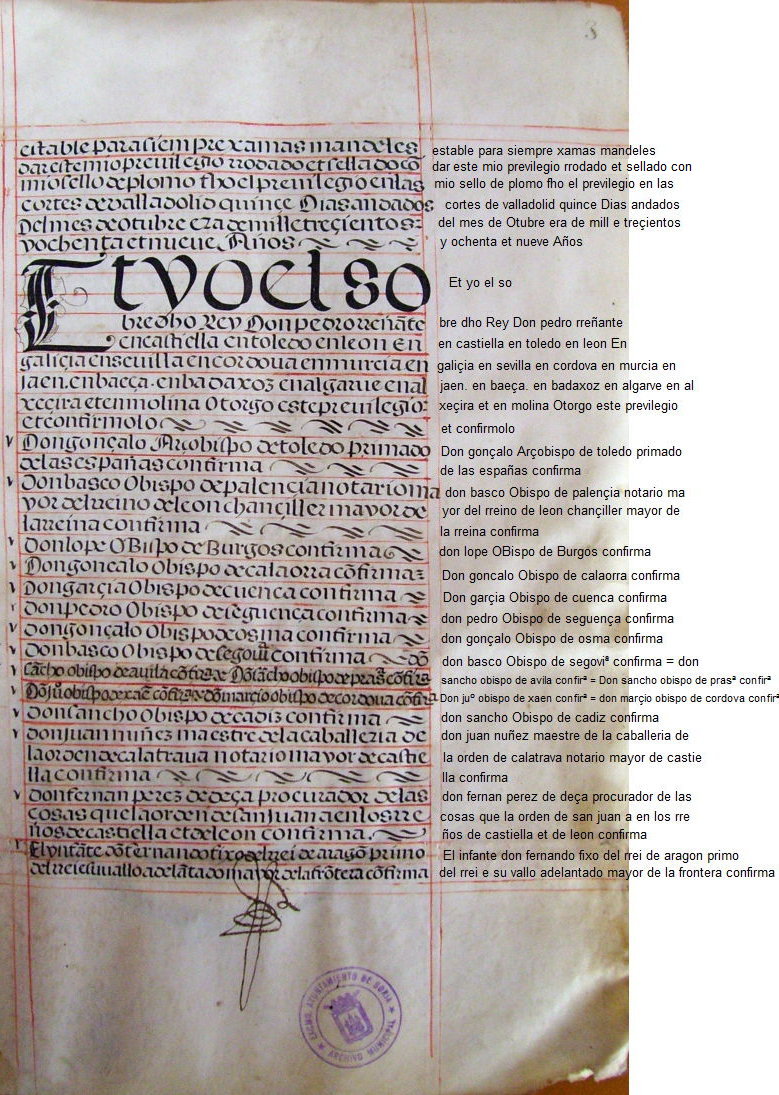 8
estable para siempre xamas mandeles
dar este mio previlegio rrodado et sellado cõ
mio sello de plomo fho el previlegio en las
cortes de valladolid quince Dias andados
Del mes de otubre era de mill e treçientos
y ochenta et nueve Años
Et yo el so
bre dho Rey Don pedro rreñãte
en castiella en toledo en leon En
galiçia en sevilla en cordova en murcia en
jaen. en baeça. en badaxoz en algarve en al
xeçira et en molina Otorgo este previlegio
et confirmolo
Don gonçalo Arçobispo de toledo primado
de las españas confirma
don basco Obispo de palençia notario ma
yor del rreino de leon chançiller mayor de
la rreina confirma
Don lope OBispo de Burgos confirma
Don goncalo Obispo de calaorra cõfirma
Don garçia Obispo de cuenca confirma
don pedro Obispo de seguença confirma
don gonçalo Obispo de osma confirma
don basco Obispo de segoviª confirma = dõ
sãcho obispo de avila cõfirª = Dõ sãcho obispo de prasª cõfirª
Dõ juº obispo de xaẽ cõfirª = dõ marçio obispo de cordova cõfirª
Don sancho Obispo de cadiz confirma
don juan nuñez maestre de la caballeria de
la orden de calatrava notario mayor de castie
lla confirma
don fernan perez de deça procurador de las
cosas que la orden de san juan a en los rre
ños de castiella et de leon confirma
El ynfãte dõ fernando fixo del rrei de aragõ primo
del rrei e su vallo adelãtado mayor de la frõtera cõfirma
EXCMO. AYUNTAMIENTO DE SORIA
ARCHIVO MUNICIPAL
estable para siempre xamas mandeles
dar este mio previlegio rrodado et sellado con
mio sello de plomo fho el previlegio en las
cortes de valladolid quince Dias andados
del mes de Otubre era de mill e treçientos
y ochenta et nueve Años
Et yo el so
bre dho Rey Don pedro rreñante
en castiella en toledo en leon En
galiçia en sevilla en cordova en murcia en
jaen. en baeça. en badaxoz en algarve en al
xeçira et en molina Otorgo este previlegio
et confirmolo
Don gonçalo Arçobispo de toledo primado
de las españas confirma
don basco Obispo de palençia notario ma
yor del rreino de leon chançiller mayor de
la rreina confirma
don lope OBispo de Burgos confirma
Don goncalo Obispo de calaorra confirma
Don garçia Obispo de cuenca confirma
don pedro Obispo de seguença confirma
don gonçalo Obispo de osma confirma
don basco Obispo de segoviª confirma = don
sancho obispo de avila confirª = Don sancho obispo de prasª confirª
Don juº obispo de xaen confirª = don marçio obispo de cordova confirª
don sancho Obispo de cadiz confirma
don juan nuñez maestre de la caballeria de
la orden de calatrava notario mayor de castie
lla confirma
don fernan perez de deça procurador de las
cosas que la orden de san juan a en los rre
ños de castiella et de leon confirma
El infante don fernando fixo del rrei de aragon primo
del rrei e su vallo adelantado mayor de la frontera confirma